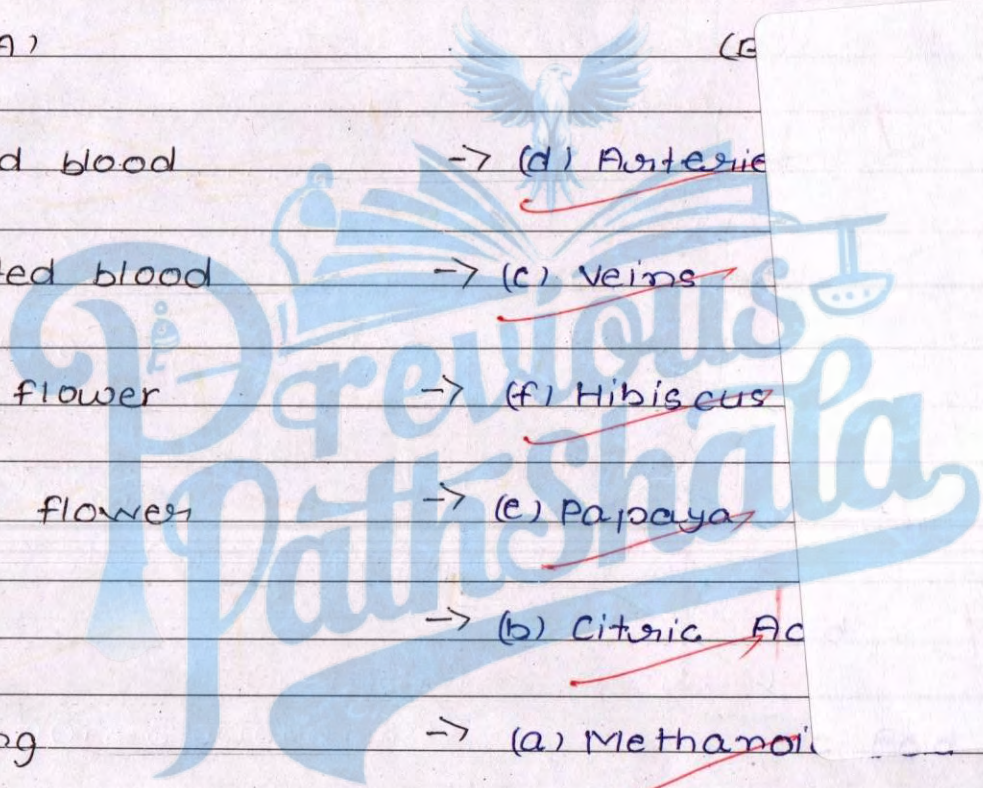 A) (B
d blood -> (d) Arterie
ted blood -> (c) Veins
flower -> (f) Hibiscus
flower -> (e) Papaya
-> (b) Citric Ac
og -> (a) Methanoi
Previous
Pathshala